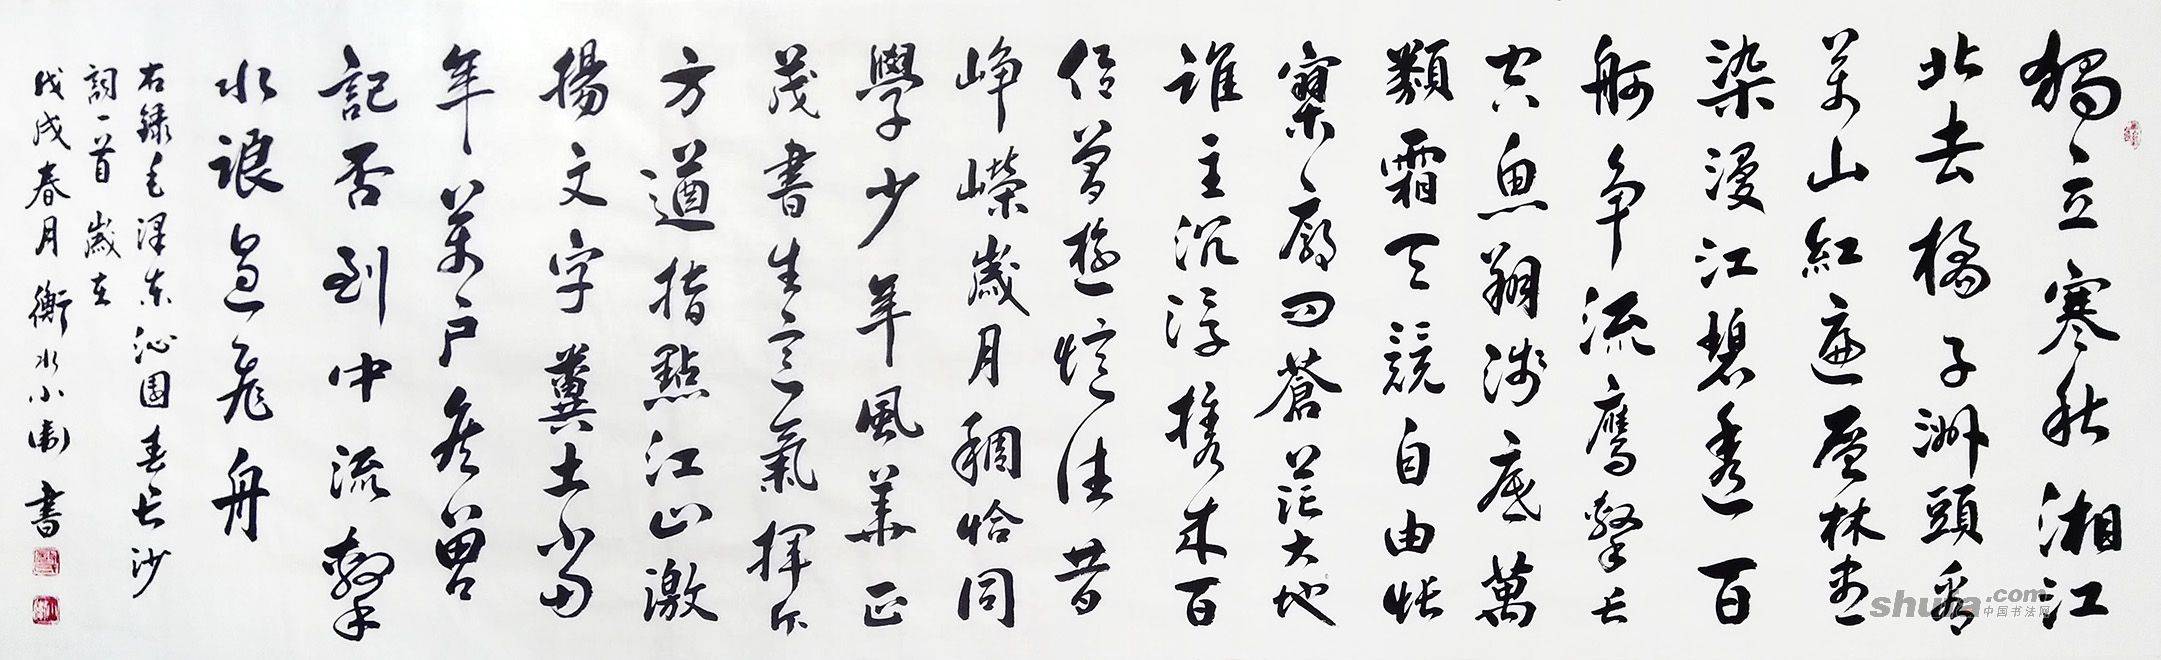 獨立寒秋湘江
北去橘子洲頭看
萬山紅遍層林盡
染漫江碧透百
舸爭流鷹擊長
空魚翔淺底萬
類霜天競自由悵
寥廓問蒼茫大地
誰主沉浮攜來百
侶曾遊憶往昔
崢嶸歲月稠恰同
學少年風華正
茂書生意氣揮斥
方遒指點江山激
揚文字糞土當
年萬戶侯曾
記否到中流擊
水浪遏飛舟
右錄毛澤東沁園春長沙
詞一首歲在
戊戌春月衡水小衛書
shufa.com
中国书法网